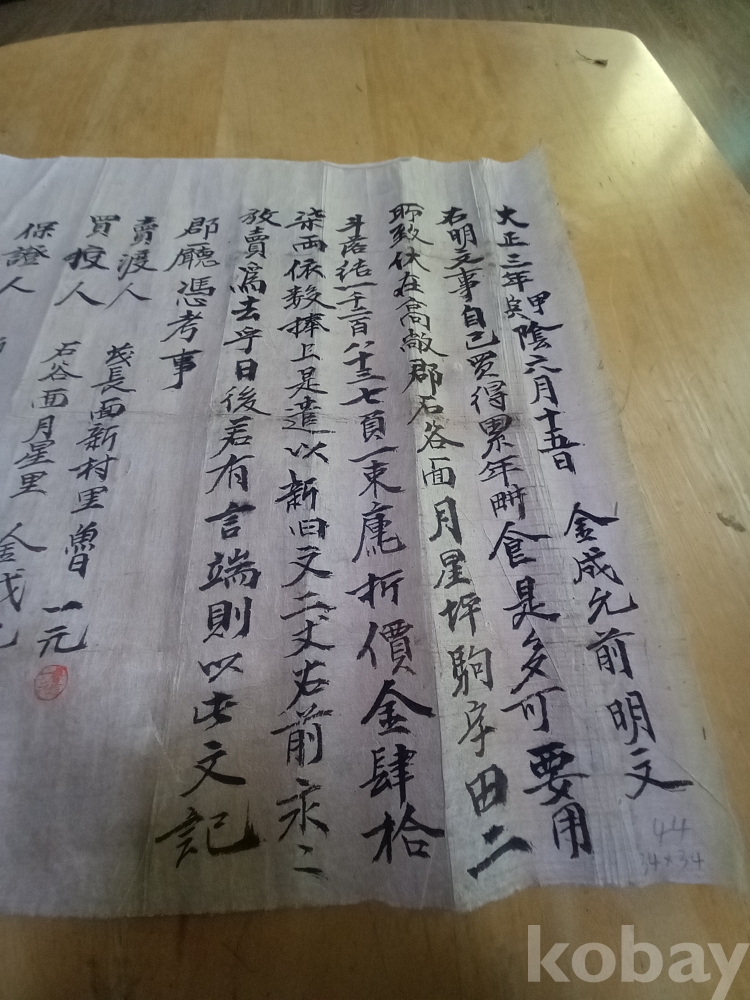 大正三年甲寅陰六月十五日 金成允前明文
右明文事自己買得累年畊食是多可要用
所致伏在高敞郡石谷面月星坪駒字田二
斗落結一千二百八十三七頁一束庫折價金肆拾
柒兩依數捧上是遣以新旧文二丈右前永々
放賣爲去乎日後若有言端則以此文記
郡廳憑考事
賣渡人 茂長面新村里 魯一元
買 人 石谷面月星里 金成允
保證人
44
34×34
kobay